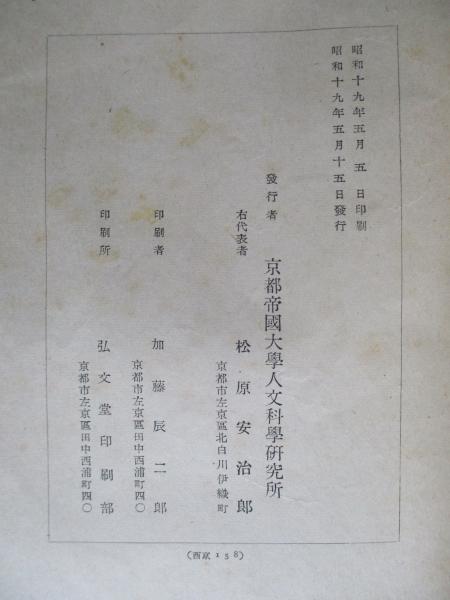 昭和十九年五月五日印刷
昭和十九年五月十五日發行
發行者 京都帝國大學人文科學硏究所
右代表者 松原安治郎
京都市左京區北白川伊織町
印刷者 加藤辰二郎
京都市左京區田中西浦町四〇
印刷所 弘文堂印刷部
京都市左京區田中西浦町四〇
(西京 158)